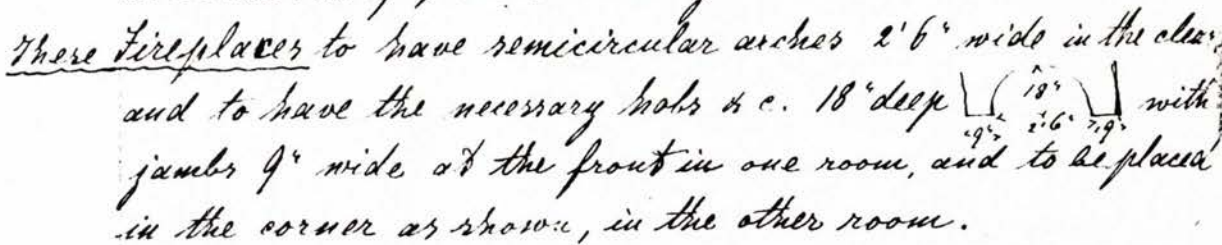 These Fireplaces to have semicircular arches 2'6" wide in the clear,
and to have the necessary hobs & c. 18" deep 18" 9" 2'6" 9" with
jambs 9" wide at the front in one room, and to be placed
in the corner as shown, in the other room.